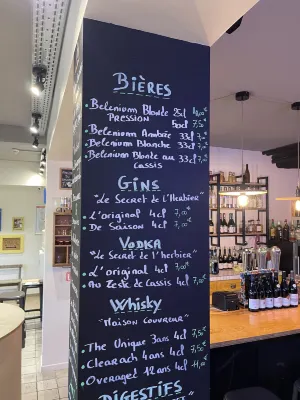 BIÈRES
• Belenium Blonde 25cl 4,00€
PRESSION 50cl 7,50€
• Belenium Ambrée 33cl 7,-€
• Belenium Blanche 33cl 7,-€
• Belenium Blonde au 33cl 7,-€
CASSIS
GINS
"Le Secret de l'Herbier"
• L'original 4cl 7,00€
• De Saison 4cl 7,00€
VODKA
"Le Secret de l'herbier"
• L'original 4cl 7,00€
• Au Zeste de Cassis 4cl 7,00€
Whisky
"Maison Couvreur"
• The Unique 3ans 4cl 7,50€
• Clearach 4ans 4cl 7,50€
• Overaged 12 ans 4cl 11,00€
DIGESTIFS